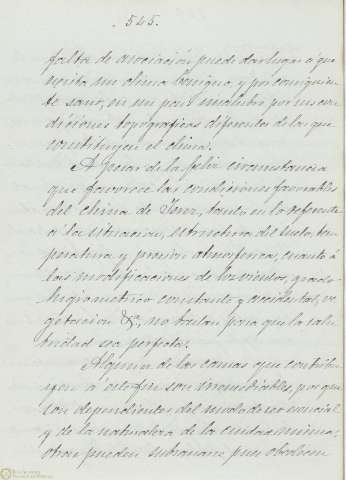 545.
falta de asociacion puede dar lugar á que
exista un clima benigno, y por consiguien-
te sano, en un pais insalubre por sus con
diciones topograficas diferentes de las que
constituyen el clima.
A pesar de la feliz circunstancia
que favorece las condiciones favorables
del clima de Jerez, tanto en lo referente
a la situacion, estructura del suelo, tem
peratura y presion atmosferica, cuanto á
las modificaciones de los vientos, grado
higrometrico constante y accidental, ve
getacion &c, no bastan para que la salu
bridad sea perfecta.
Algunas de las causas que contribu
yen á este fin son irremediables, por que
son dependientes del modo de ser esencial
y de la naturaleza de la ciudad misma;
otras pueden subsanarse pues obedecen